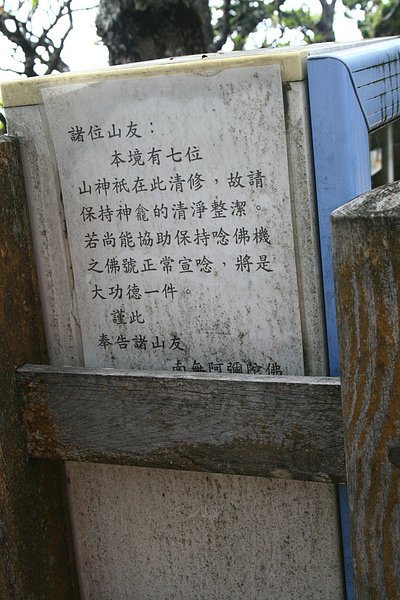 諸位山友：
本境有七位
山神祇在此清修，故請
保持神龕的清淨整潔。
若尚能協助保持唸佛機
之佛號正常宣唸，將是
大功德一件。
謹此
奉告諸山友
南無阿彌陀佛